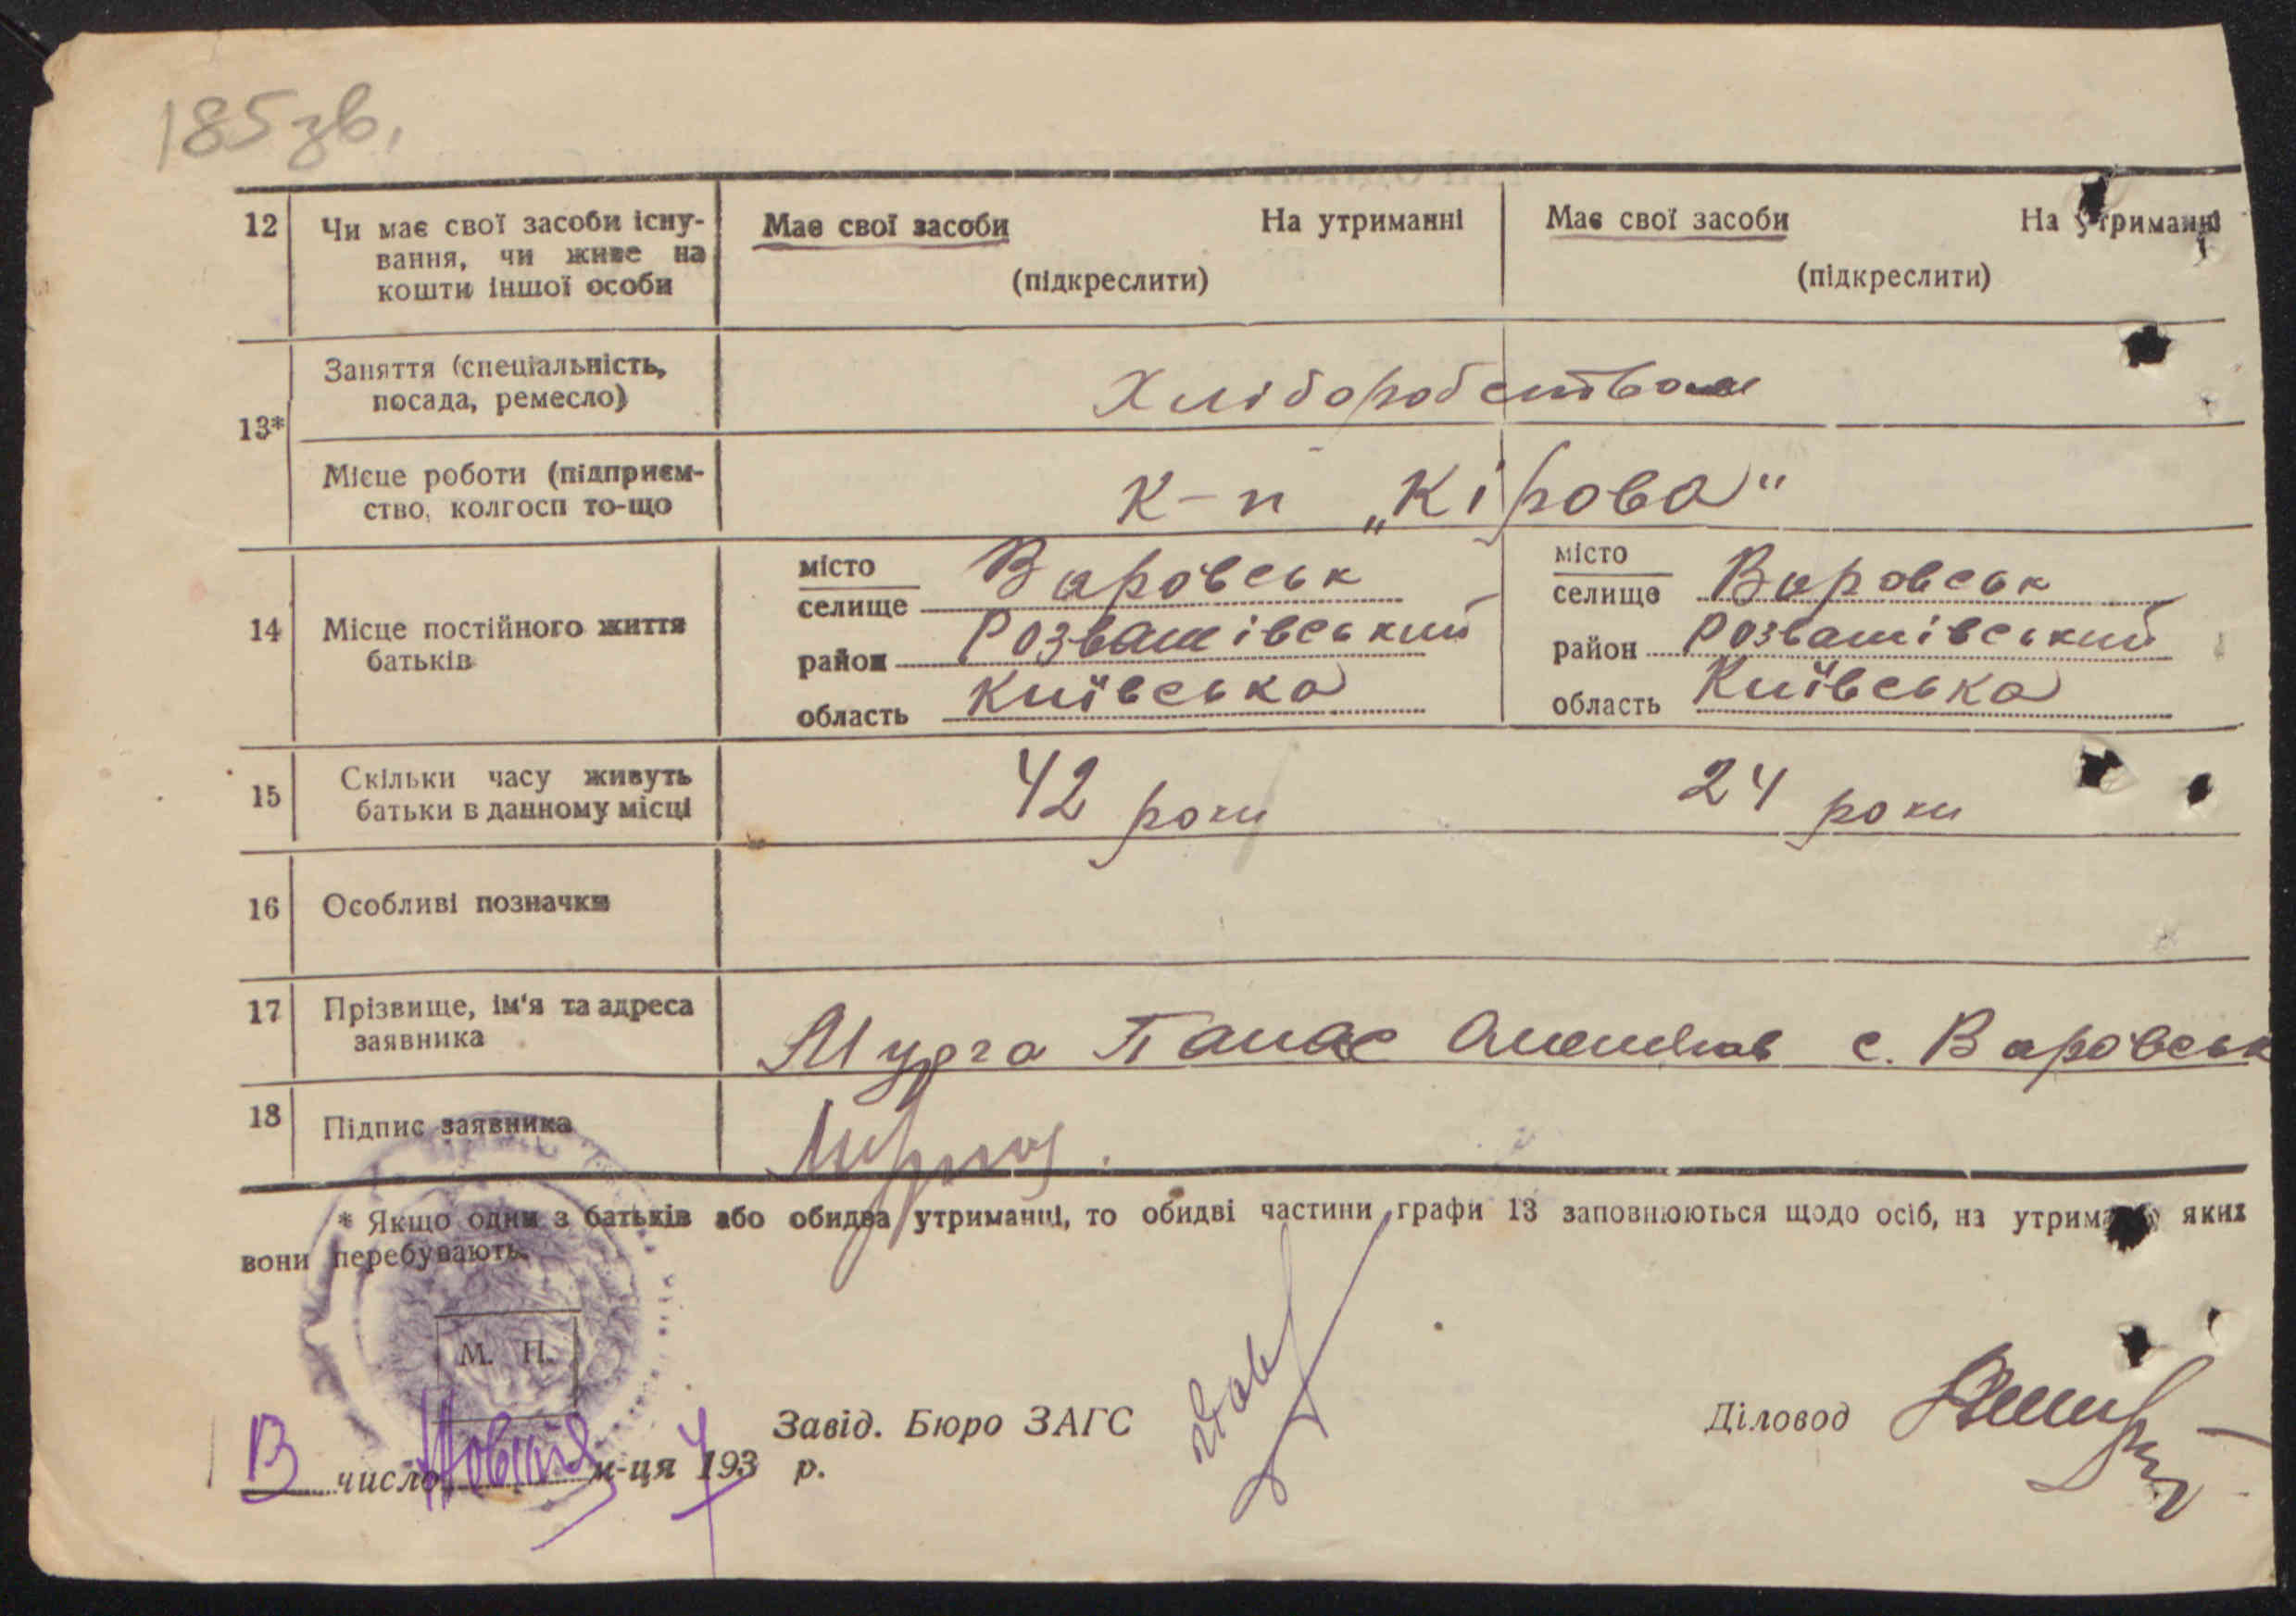 185зв.
12 Чи має свої засоби існу- Має свої засоби На утриманні Має свої засоби На утриманні
вання, чи живе на
кошти іншої особи (підкреслити) (підкреслити)
Заняття (спеціальність,
посада, ремесло) Хліборобством
13*
Місце роботи (підприєм-
ство, колгосп то-що К-п „Кірова“
місто Варовськ місто Варовськ
селище селище
14 Місце постійного життя
батьків район Розважівський район Розважівський
область Київська область Київська
15 Скільки часу живуть
батьки в данному місці 42 роки 24 роки
16 Особливі позначки
17 Прізвище, ім'я та адреса
заявника Мурга Панас с. Варовськ
18 Підпис заявника
* Якщо один з батьків або обидва утриманці, то обидві частини графи 13 заповнюються щодо осіб, на утриманні яких
вони перебувають.
М. П.
Завід. Бюро ЗАГС Діловод
13 число Жовтня м-ця 193 р.